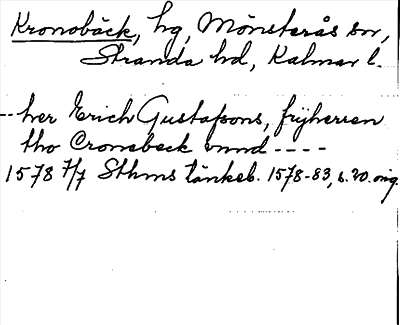 Kronobäck, hg, Mönsterås sn,
Stranda hd, Kalmar l.
-- her Erich Gustafsons, frijherren
tho Cronebeck vnnd ----
1578 7/7 Sthms tänkeb. 1578-83, s. 20. orig.